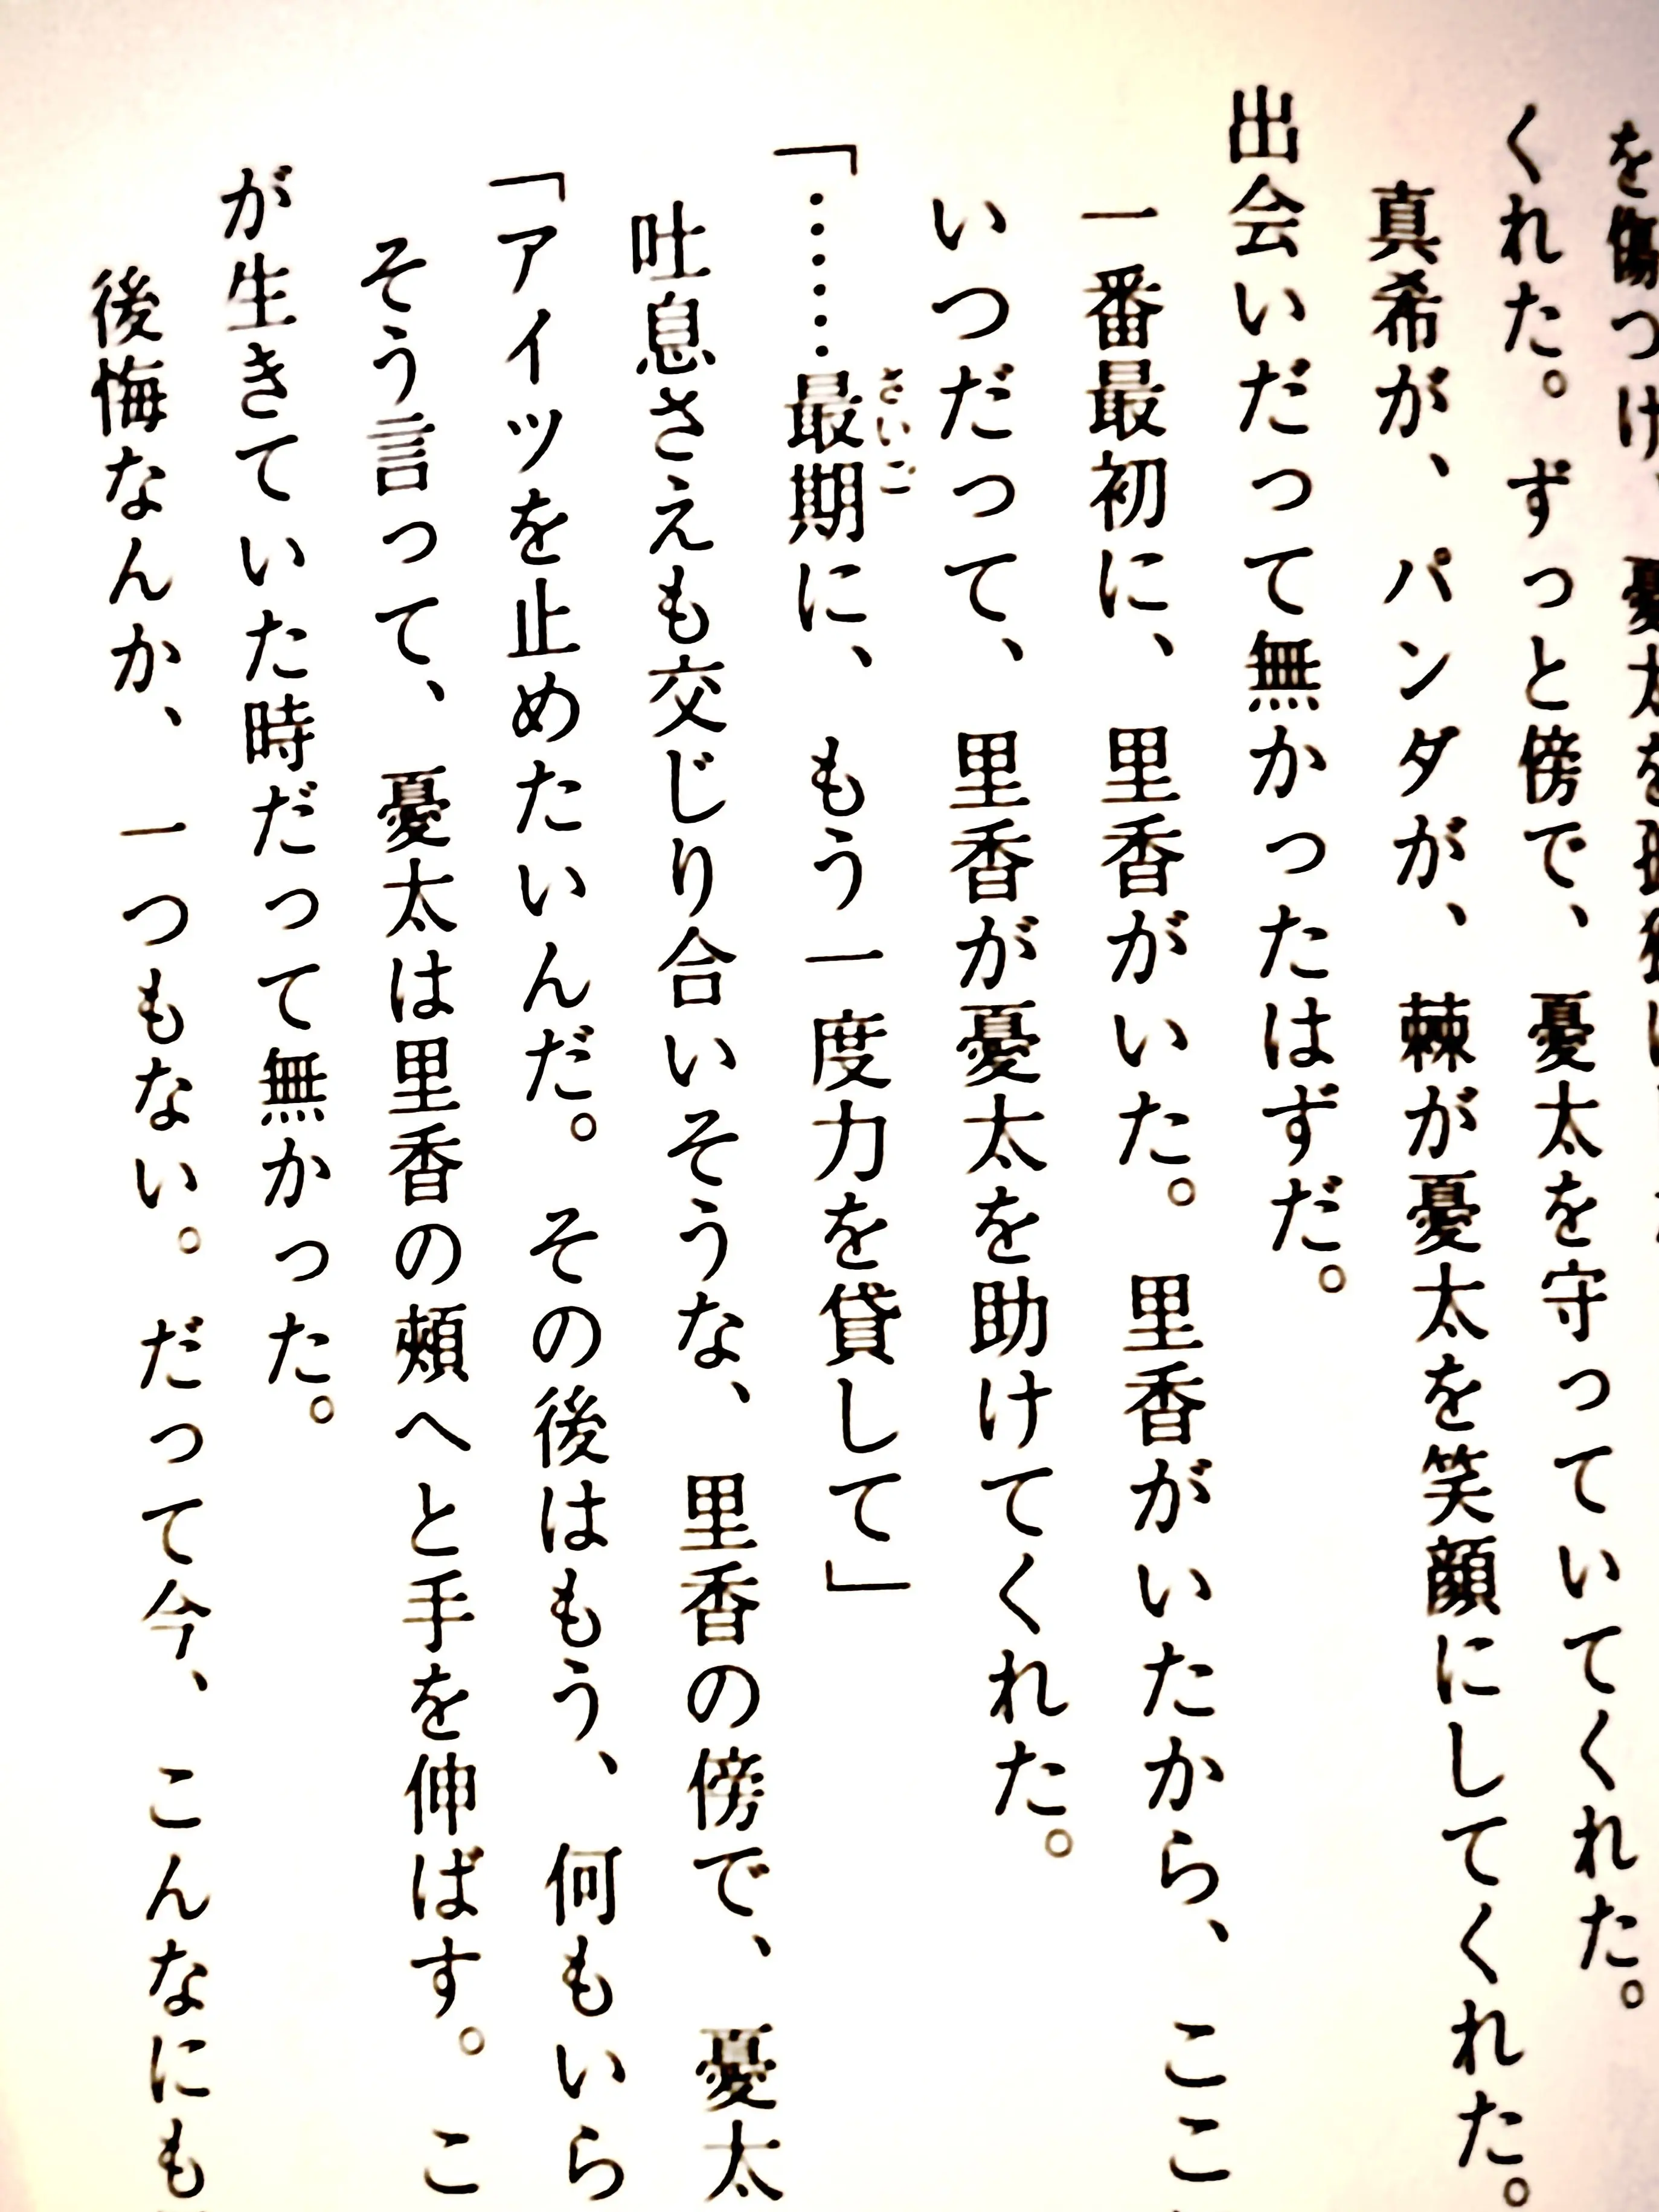 を傷つけ、憂太を
くれた。ずっと傍で、憂太を守っていてくれた。
真希が、パンダが、棘が憂太を笑顔にしてくれた。
出会いだって無かったはずだ。
一番最初に、里香がいた。里香がいたから、ここ
いつだって、里香が憂太を助けてくれた。
「……最期に、もう一度力を貸して」
さいご
吐息さえも交じり合いそうな、里香の傍で、憂太
「アイツを止めたいんだ。その後はもう、何もいら
そう言って、憂太は里香の頬へと手を伸ばす。こ
が生きていた時だって無かった。
後悔なんか、一つもない。だって今、こんなにも